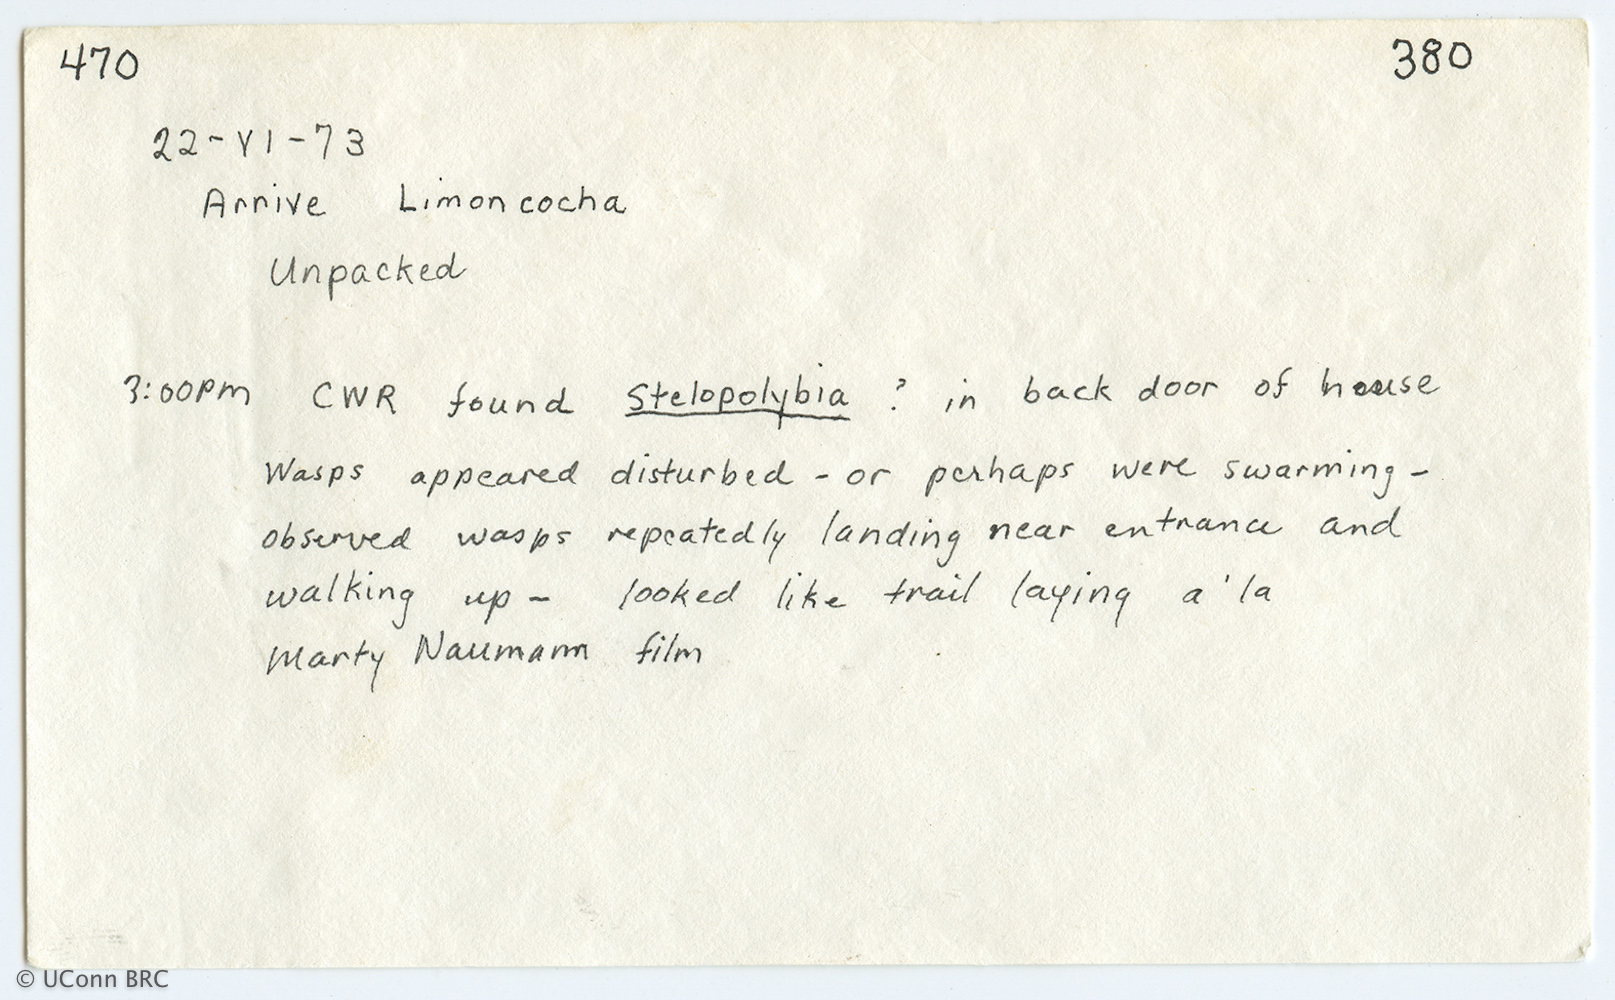 470 380
22-VI-73
Arrive Limoncocha
Unpacked
3:00pm CWR found Stelopolybia ? in back door of house
Wasps appeared disturbed - or perhaps were swarming -
observed wasps repeatedly landing near entrance and
walking up - looked like trail laying a'la
Marty Naumann film
© UConn BRC